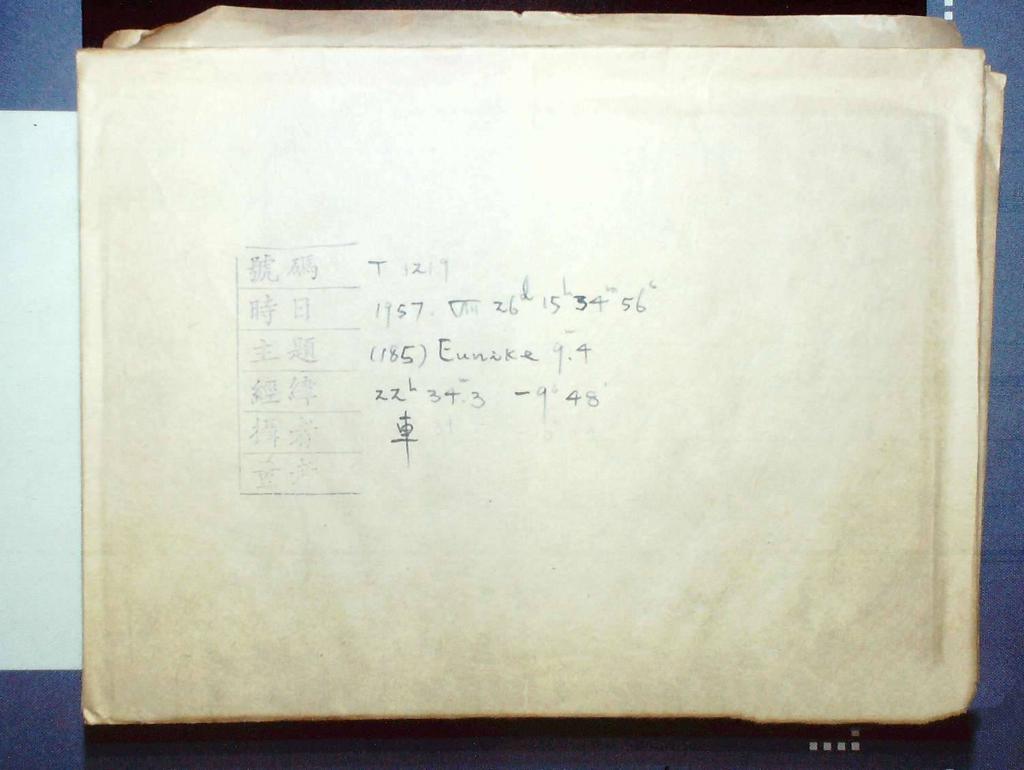 號碼 T 1219
時日 1957. VIII 26d 15h 34m 56s
主題 (185) Eunike 9m.4
經緯 22h 34m.3 -9° 48'
攝者 車